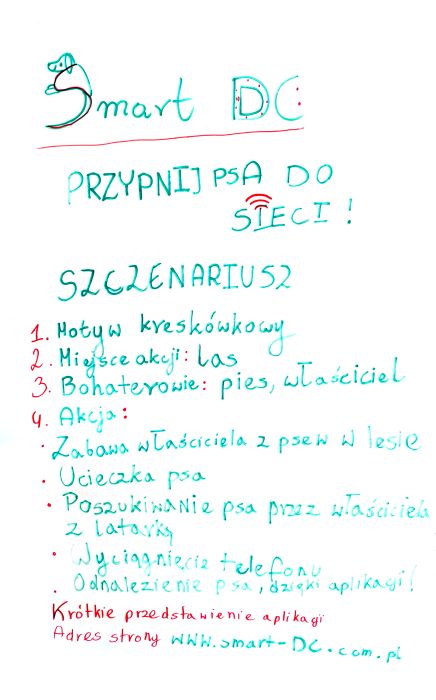 Smart DC
PRZYPNIJ PSA DO
SIECI!
SZCZENARIUSZ
1. Motyw kreskówkowy
2. Miejsce akcji: las
3. Bohaterowie: pies, właściciel
4. Akcja:
• Zabawa właściciela z psem w lesie
• Ucieczka psa
• Poszukiwanie psa przez właściciela
z latarką
• Wyciągnięcie telefonu
• Odnalezienie psa, dzięki aplikacji!
Krótkie przedstawienie aplikacji
Adres strony www.smart-DC.com.pl